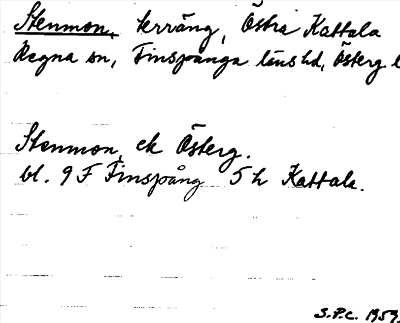 Stenmon, terräng, Östra Kattala
Regna sn, Finspånga läns hd, Österg. l
Stenmon, ek Österg.
bl. 9 F Finspång 5 h Kattala.
S.P.C. 1959.